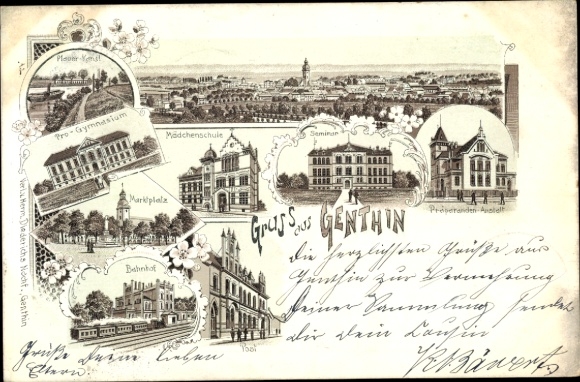 Plauer-Kanal
Pro-Gymnasium
Mädchenschule
Seminar
Präparanden-Anstalt
Marktplatz
Gruss aus GENTHIN
Bahnhof
Post
Verl. v. Herm. Diederichs Nachf., Genthin
Die herzlichsten Grüße aus
Genthin zur Vermehrung
Deiner Sammlung sendet
dir Dein Cousin
Grüße Deine lieben
Eltern.